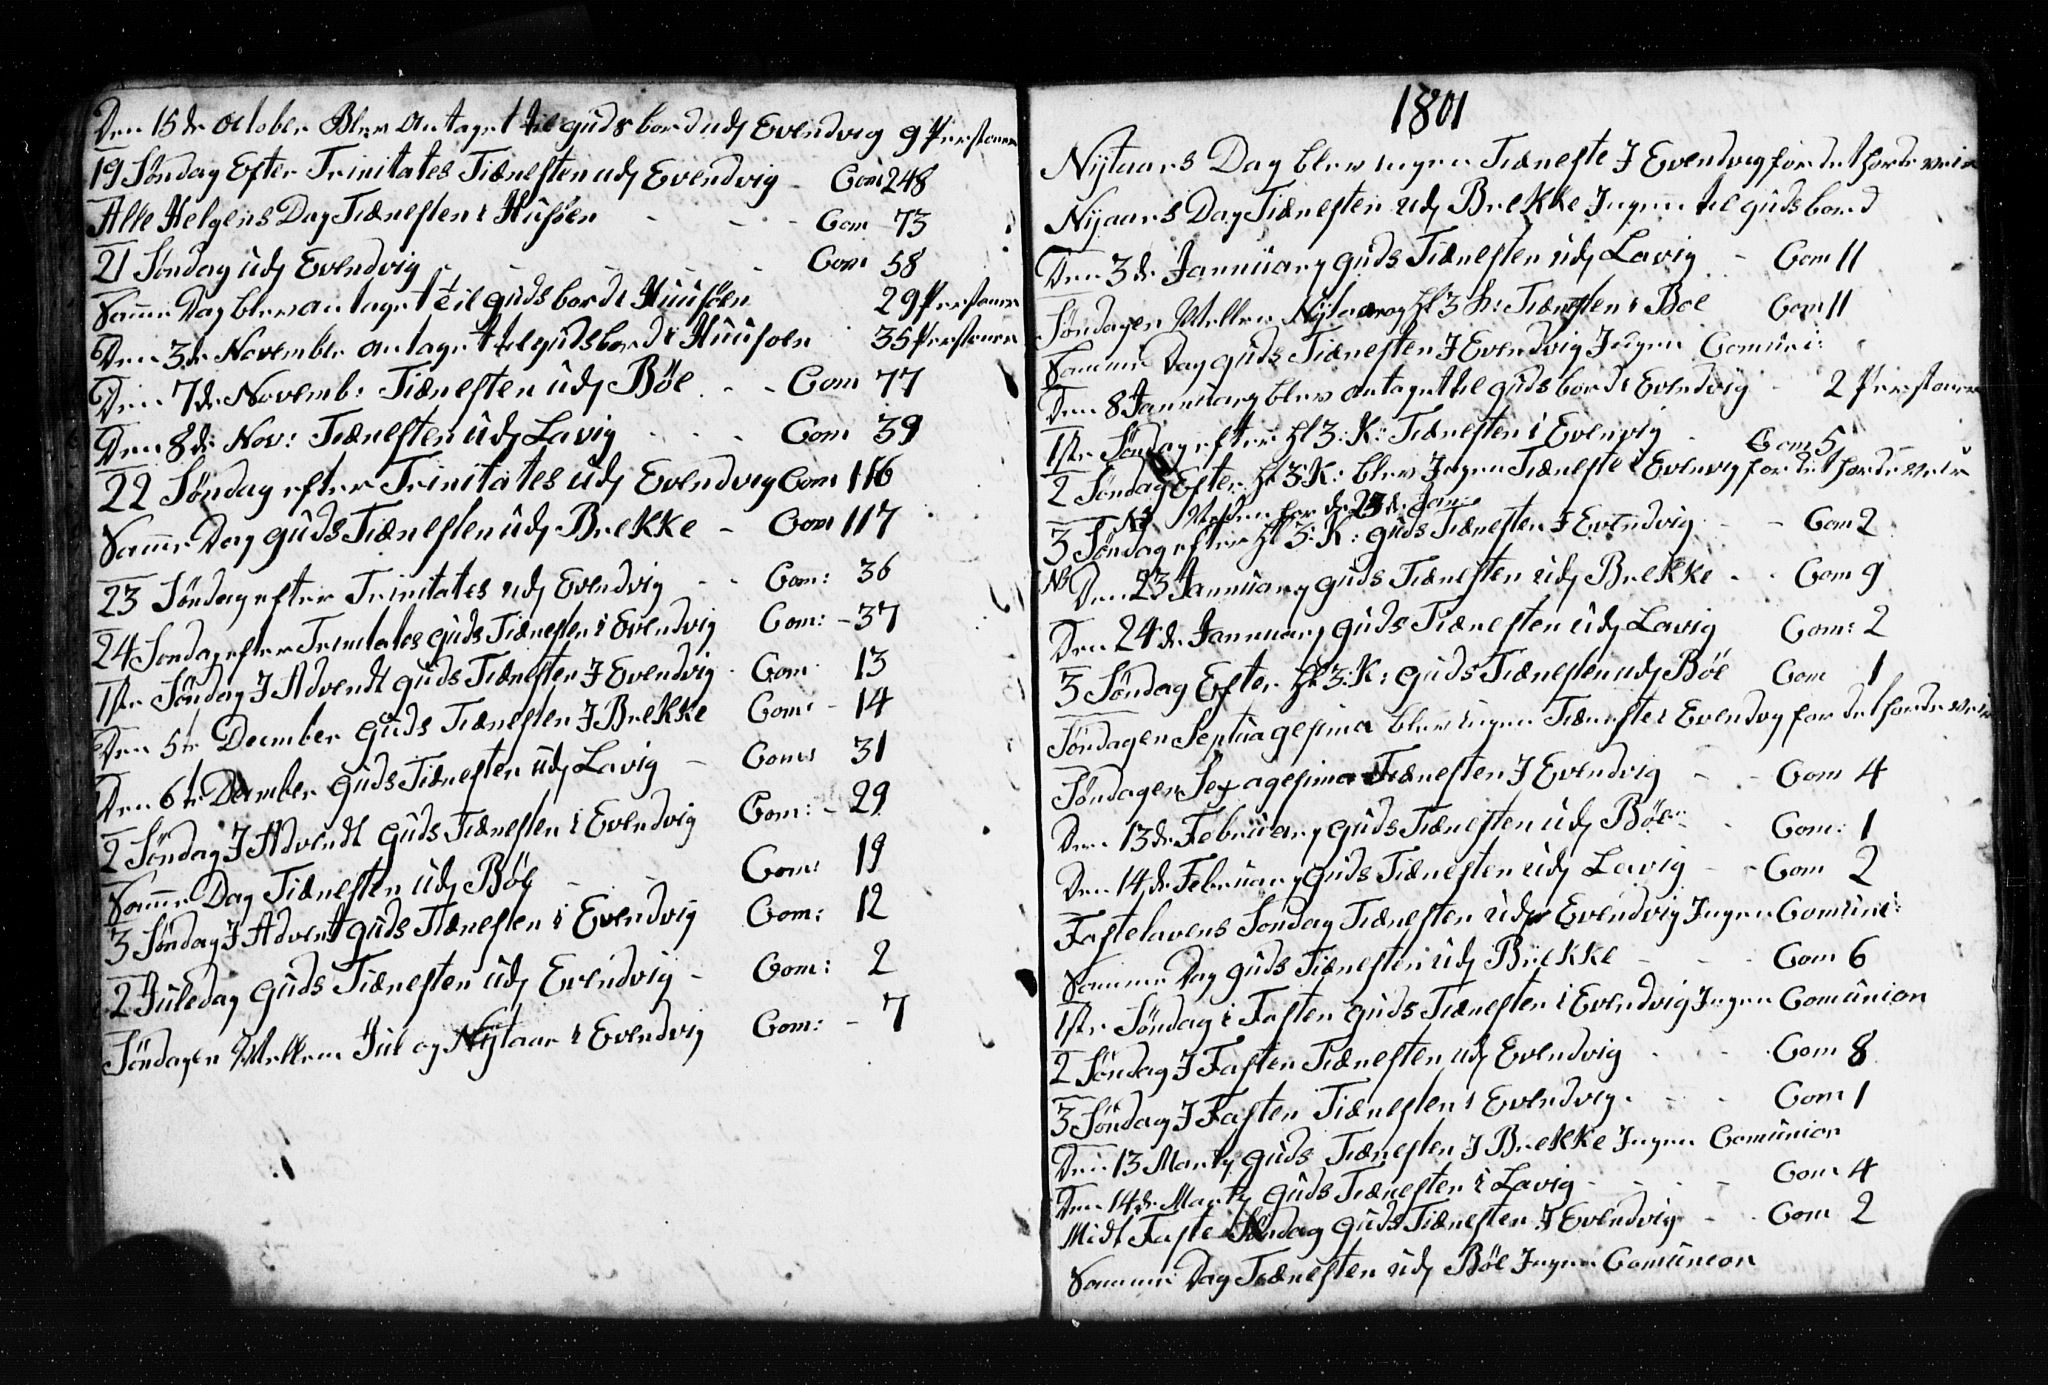 Den 15de October Blev Antaget til guds bord udj Evendvig 9 Personer
19 Søndag Efter Trinitates Tiænesten udj Evendvig - Com 248
Alle Helgens Dag Tiænesten i Husøen - - - Com 73
21 Søndag udj Evendvig - - - Com 58
Samme Dag blev antaget til guds bord i Huusøen 29 Personer
Den 3de November antaget til guds bord i Huusoen 35 Personer
Den 7de Novemb: Tiænesten udj Böe - - Com 77
Den 8de Nov: Tiænesten udj Lavig - - - Com 39
22 Søndag efter Trinitates udj Evendvig Com 116
Samme Dag guds Tiænesten udj Brekke - Com 117
23 Søndag efter Trinitates udj Evendvig - - Com: 36
24 Søndag efter Trinitates guds Tiænesten i Evendvig Com: - 37
1ste Søndag J Advendt guds Tiænesten J Evendvig - Com 13
Den 5te December guds Tiænesten J Brekke Com: - 14
Den 6te December guds Tiænesten udj Lavig - Com: 31
2 Søndag J Advendt guds Tiænesten i Evendvig Com: - 29
Samme Dag Tiænesten udj Böe - - Com: 19
3 Søndag J Advent guds Tiænesten i Evendvig Com: 12
2 Juledag guds Tiænesten udj Evendvig - Com: 2
Søndagen Mellem Jul og Nytaar i Evendvig Com: - 7
1801
Nytaars Dag blev ingen Tiæneste J Evendvig for det haarde veir
Nyaars Dag Tiænesten udj Brekke Ingen til guds bord
Den 3de Januuary guds Tiænesten udj Lavig - Com 11
Søndagen Mellem Nytaar og hl 3 K: Tiænesten i Boe Com 11
Samme Dag guds Tiænesten J Evendvig Ingen Comuni:
Den 8 Januuary blev antaget til guds bord i Evendvig - 2 Personer
1ste Søndag efter hl 3: K: Tiænesten i Evenvig - Com 5
2 Søndag Efter hl 3 K: blev Ingen Tiæneste i Evenvig for det haarde veir
NB den 23de Jan:
3 Søndag efter hl 3: K: guds Tiænesten J Evendvig - - Com 2
NB Den 23 Januuary guds Tiænesten udj Brekke - - Com 9
Den 24de Januuary guds Tiænesten udj Lavig Com: 2
3 Søndag Efter hl 3: K: guds Tiænesten udj Böe Com 1
Søndagen Septuagesima blev ingen Tiæneste i Evendvig for det haarde veir
Søndagen Sexagesima Tiænesten J Evendvig - - Com 4
Den 13de February guds Tiænesten udj Böe - - Com: 1
Den 14de February guds Tiænesten udj Lavig - - Com 2
Fastelavens Søndag Tiænesten udj Evendvig Ingen Comuni:
Samme Dag guds Tiænesten udj Brekke - - - Com 6
1ste Søndag i Fasten guds Tiænesten i Evendvig Ingen Comunion
2 Søndag J Fasten Tiænesten udj Evendvig - - - Com 8
3 Søndag J Fasten Tiænesten i Evendvig - - - Com 1
Den 13 Marty guds Tiænesten J Brekke Ingen Comunion
Den 14de Marty guds Tiænesten i Lavig - - - - Com 4
Midt Faste Søndag guds Tiænesten J Evendvig - - Com 2
Samme Dag Tiænesten udj Böe Ingen Comunion